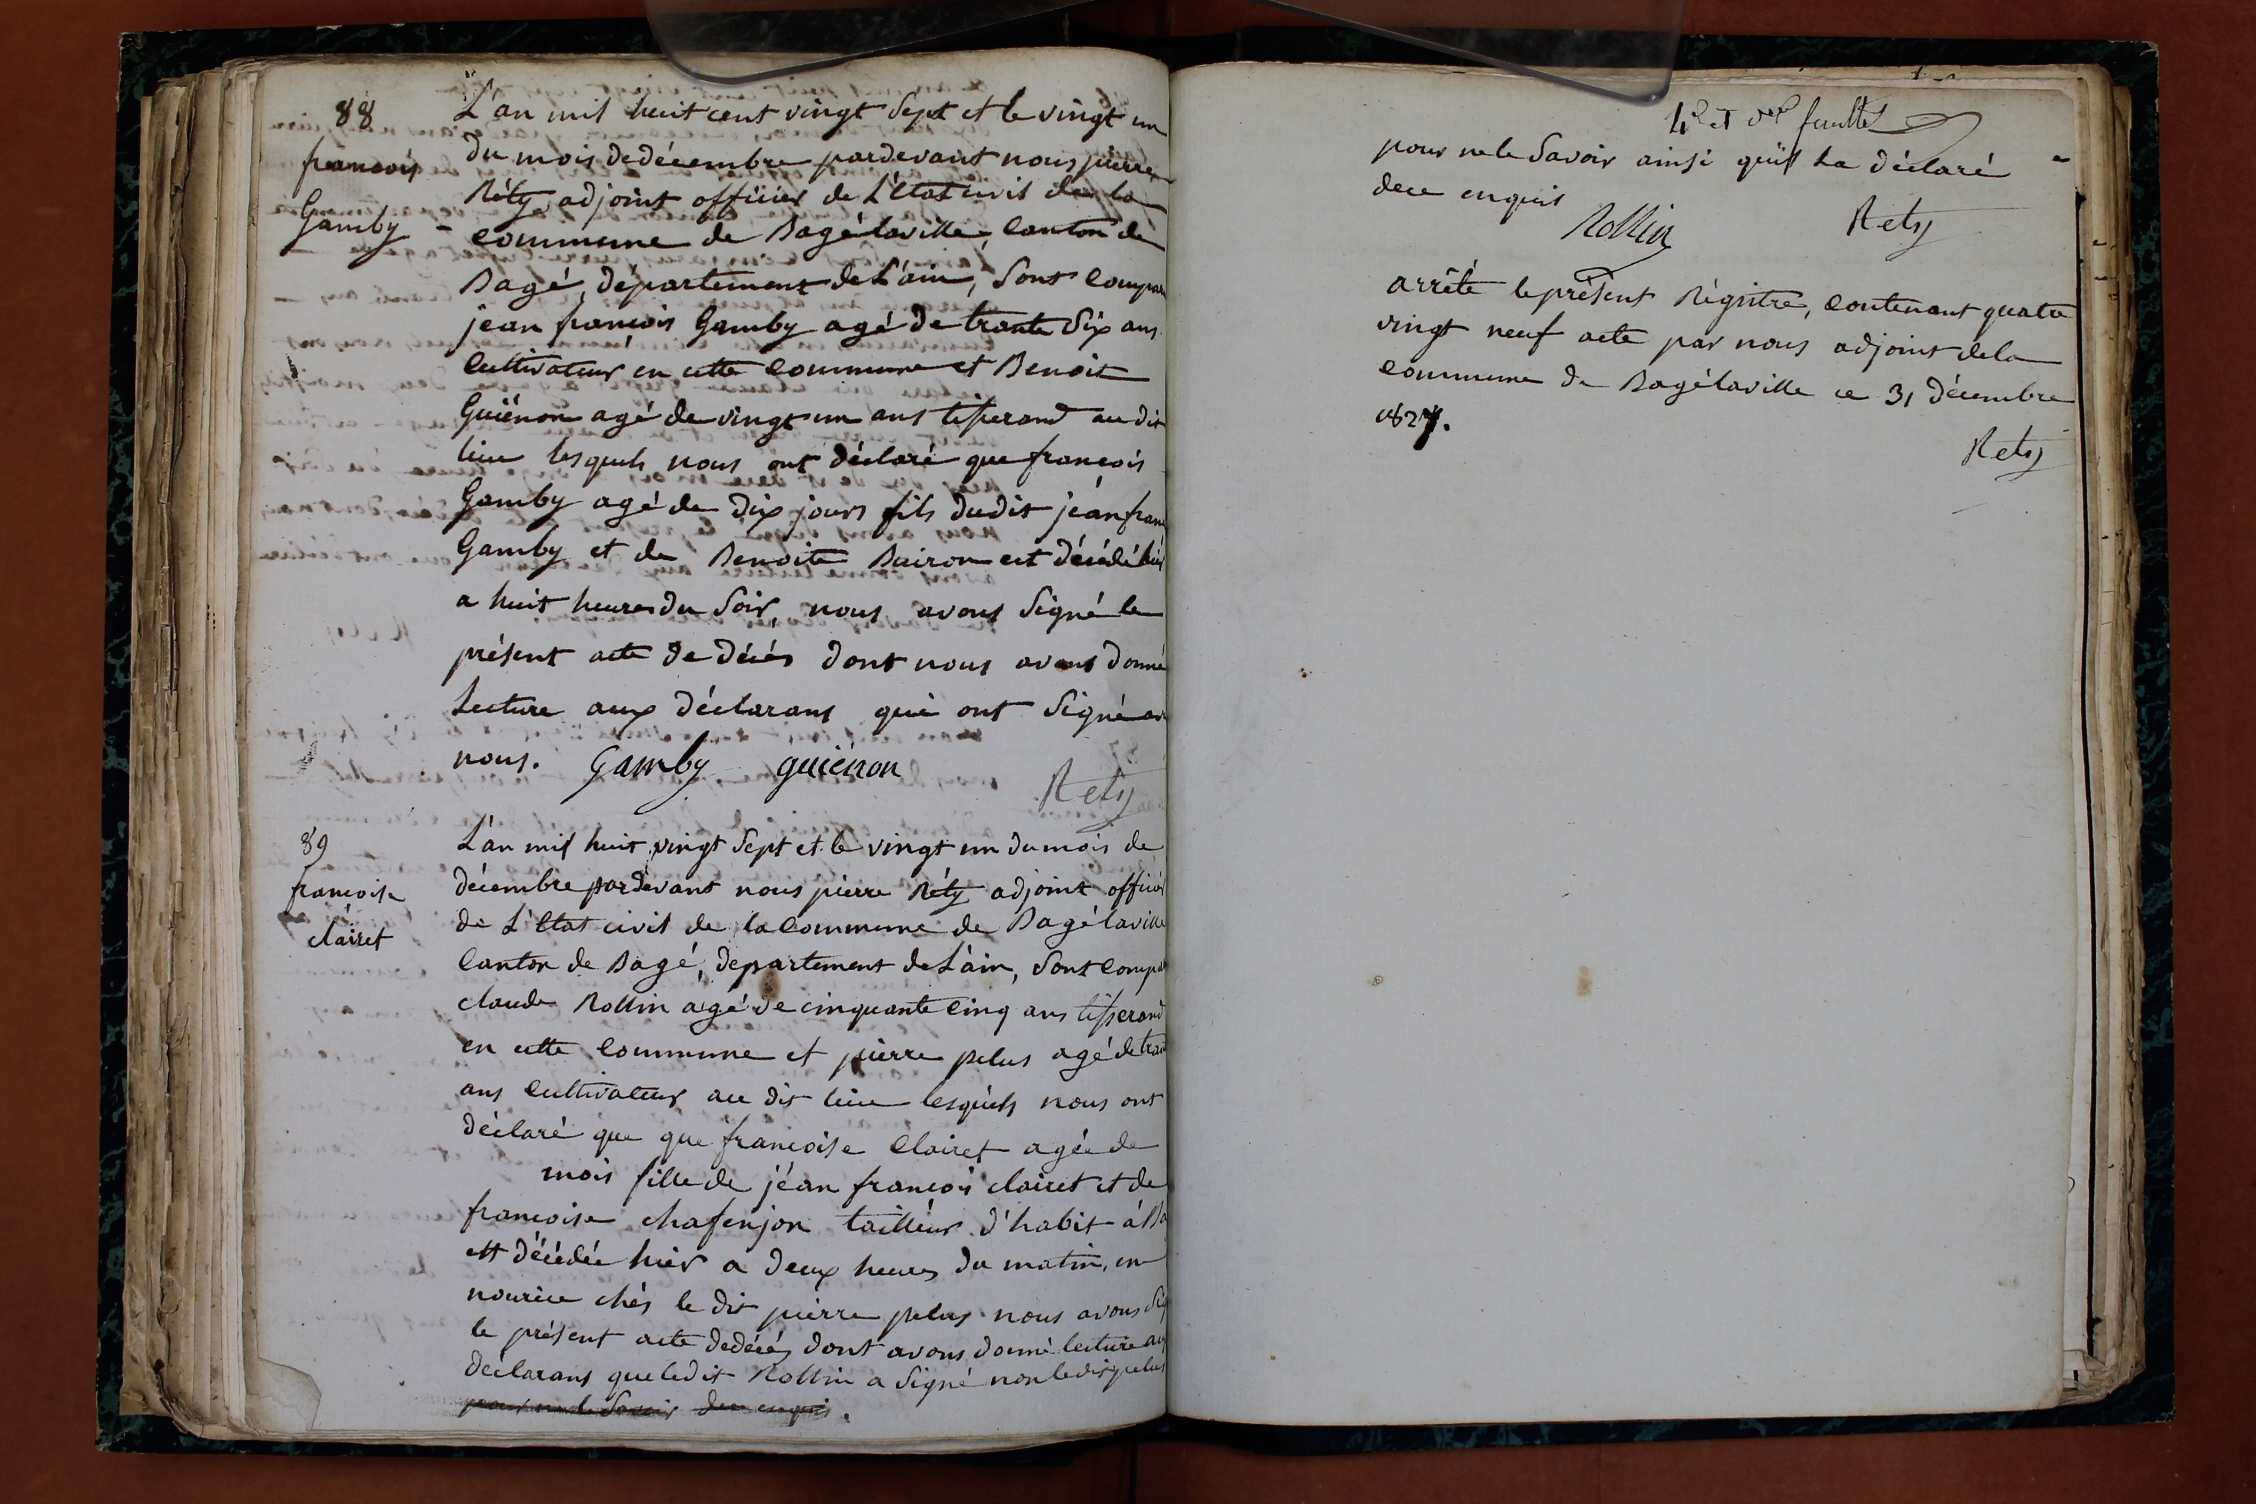 88
francois
Gamby -
L'an mil huit cent vingt sept et le vingt un
du mois de décembre pardevant nous pierre
Réty adjoint officier de L'état civil de la
commune de Bagélaville, canton de
Bagé, département de L'ain, Sont compar
jean françois Gamby agé de trante Six ans
cultivateur en cette commune et Benoit
Guiénon agé de vingt un ans tisserand au dit
lieu lesquels nous ont déclaré que françois
Gamby agé de dix jours fils dudit jéan fran
Gamby et de Benoite Buiron est décédé hier
a huit heures du Soir, nous avons Signé le
présent acte de décés dont nous avons donné
Lecture aux déclarans qui ont Signé av
nous. Gamby guiénon
Rety
89
francoise
clairet
L'an mil huit vingt Sept et le vingt un du mois de
décembre pardevant nous pierre Réty adjoint officier
de L'état civil de la commune de Bagélaville
canton de Bagé, departement de L'ain, Sont compar
claude Rollin agé de cinquante cinq ans tisserand
en cette commune et pierre pelus agé de tran
ans cultivateur au dit lieu lesquels nous ont
déclaré que que francoise Clairet agée de
mois fille de jéan françois clairet et de
francoise chafenjon tailleur d'habit á Ba
est décédée hier a deux heures du matin, en
nourice chés le dit pierre pelus nous avons Sig
le présent acte de décés dont avons donné lecture aux
déclarans que ledit Rollin a Signé non ledit pelus
pour ne le Savoir de ce enquis.
4e et der feuillet
pour ne le Savoir ainsi qu'il la déclaré
de ce enquis
Rollin Rety
arrêté le présent Régistre, contenant quatre
vingt neuf acte par nous adjoint de la
commune de Bagélaville ce 31 décembre
1827.
Rety